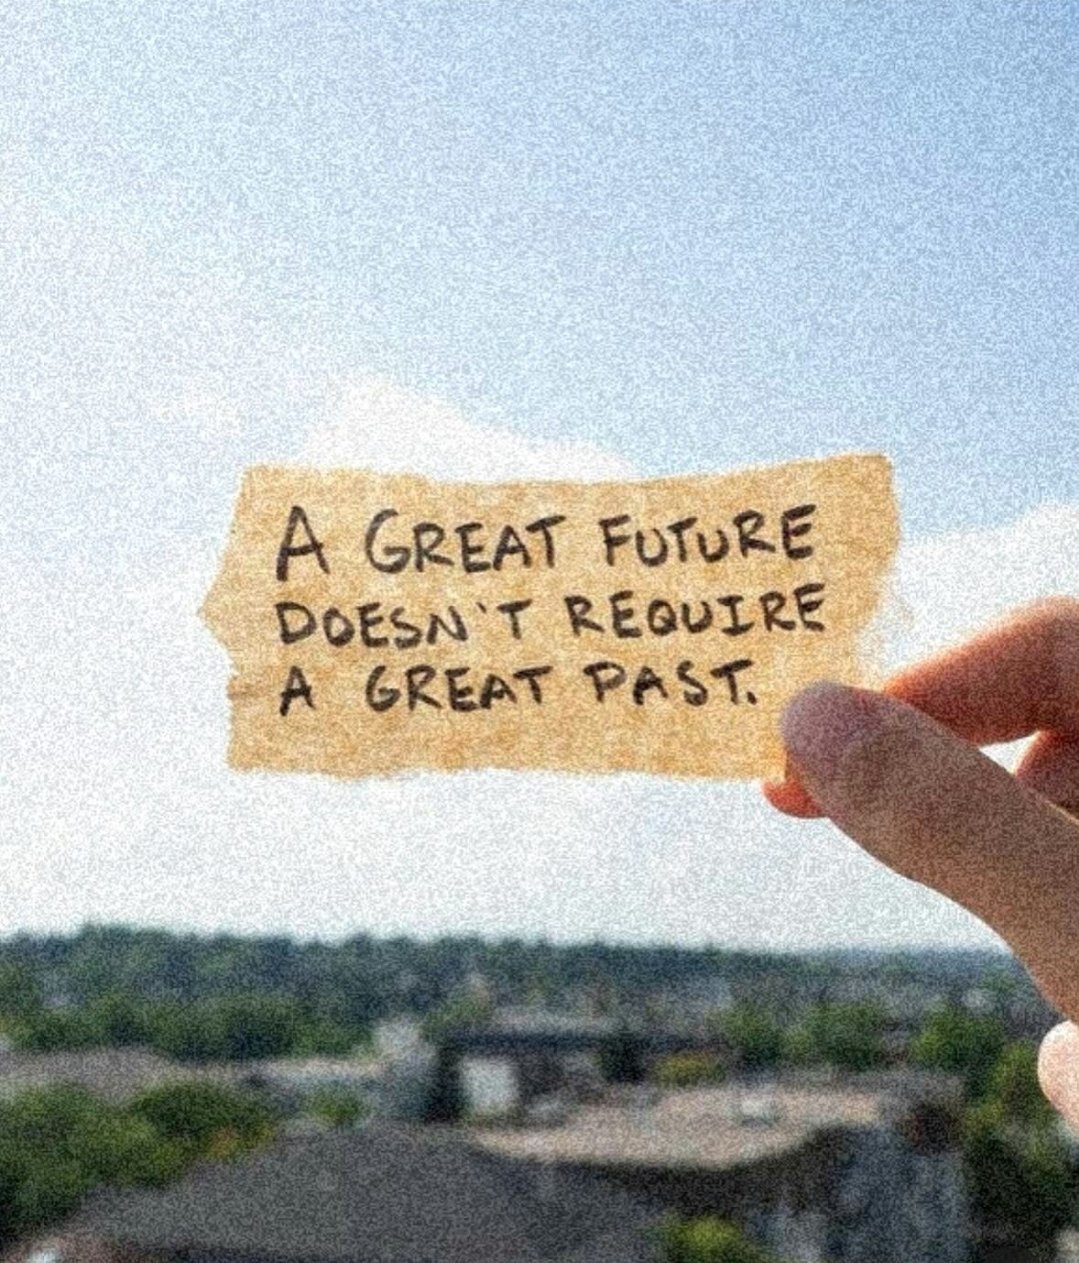 A GREAT FUTURE
DOESN'T REQUIRE
A GREAT PAST.